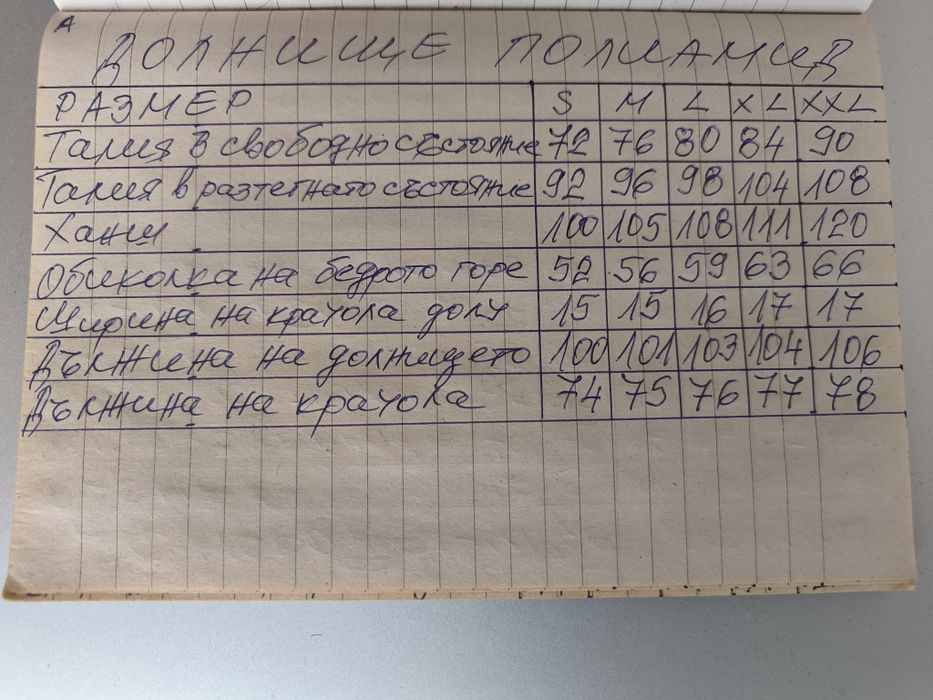 А
ДОЛНИЩЕ ПОЛИАМИД
РАЗМЕР S M L XL XXL
Талия в свободно състояние 72 76 80 84 90
Талия в разтегнато състояние 92 96 98 104 108
Ханш 100 105 108 111 120
Обиколка на бедрото горе 52 56 59 63 66
Ширина на крачола долу 15 15 16 17 17
Дължина на долнището 100 101 103 104 106
Дължина на крачола 74 75 76 77 78